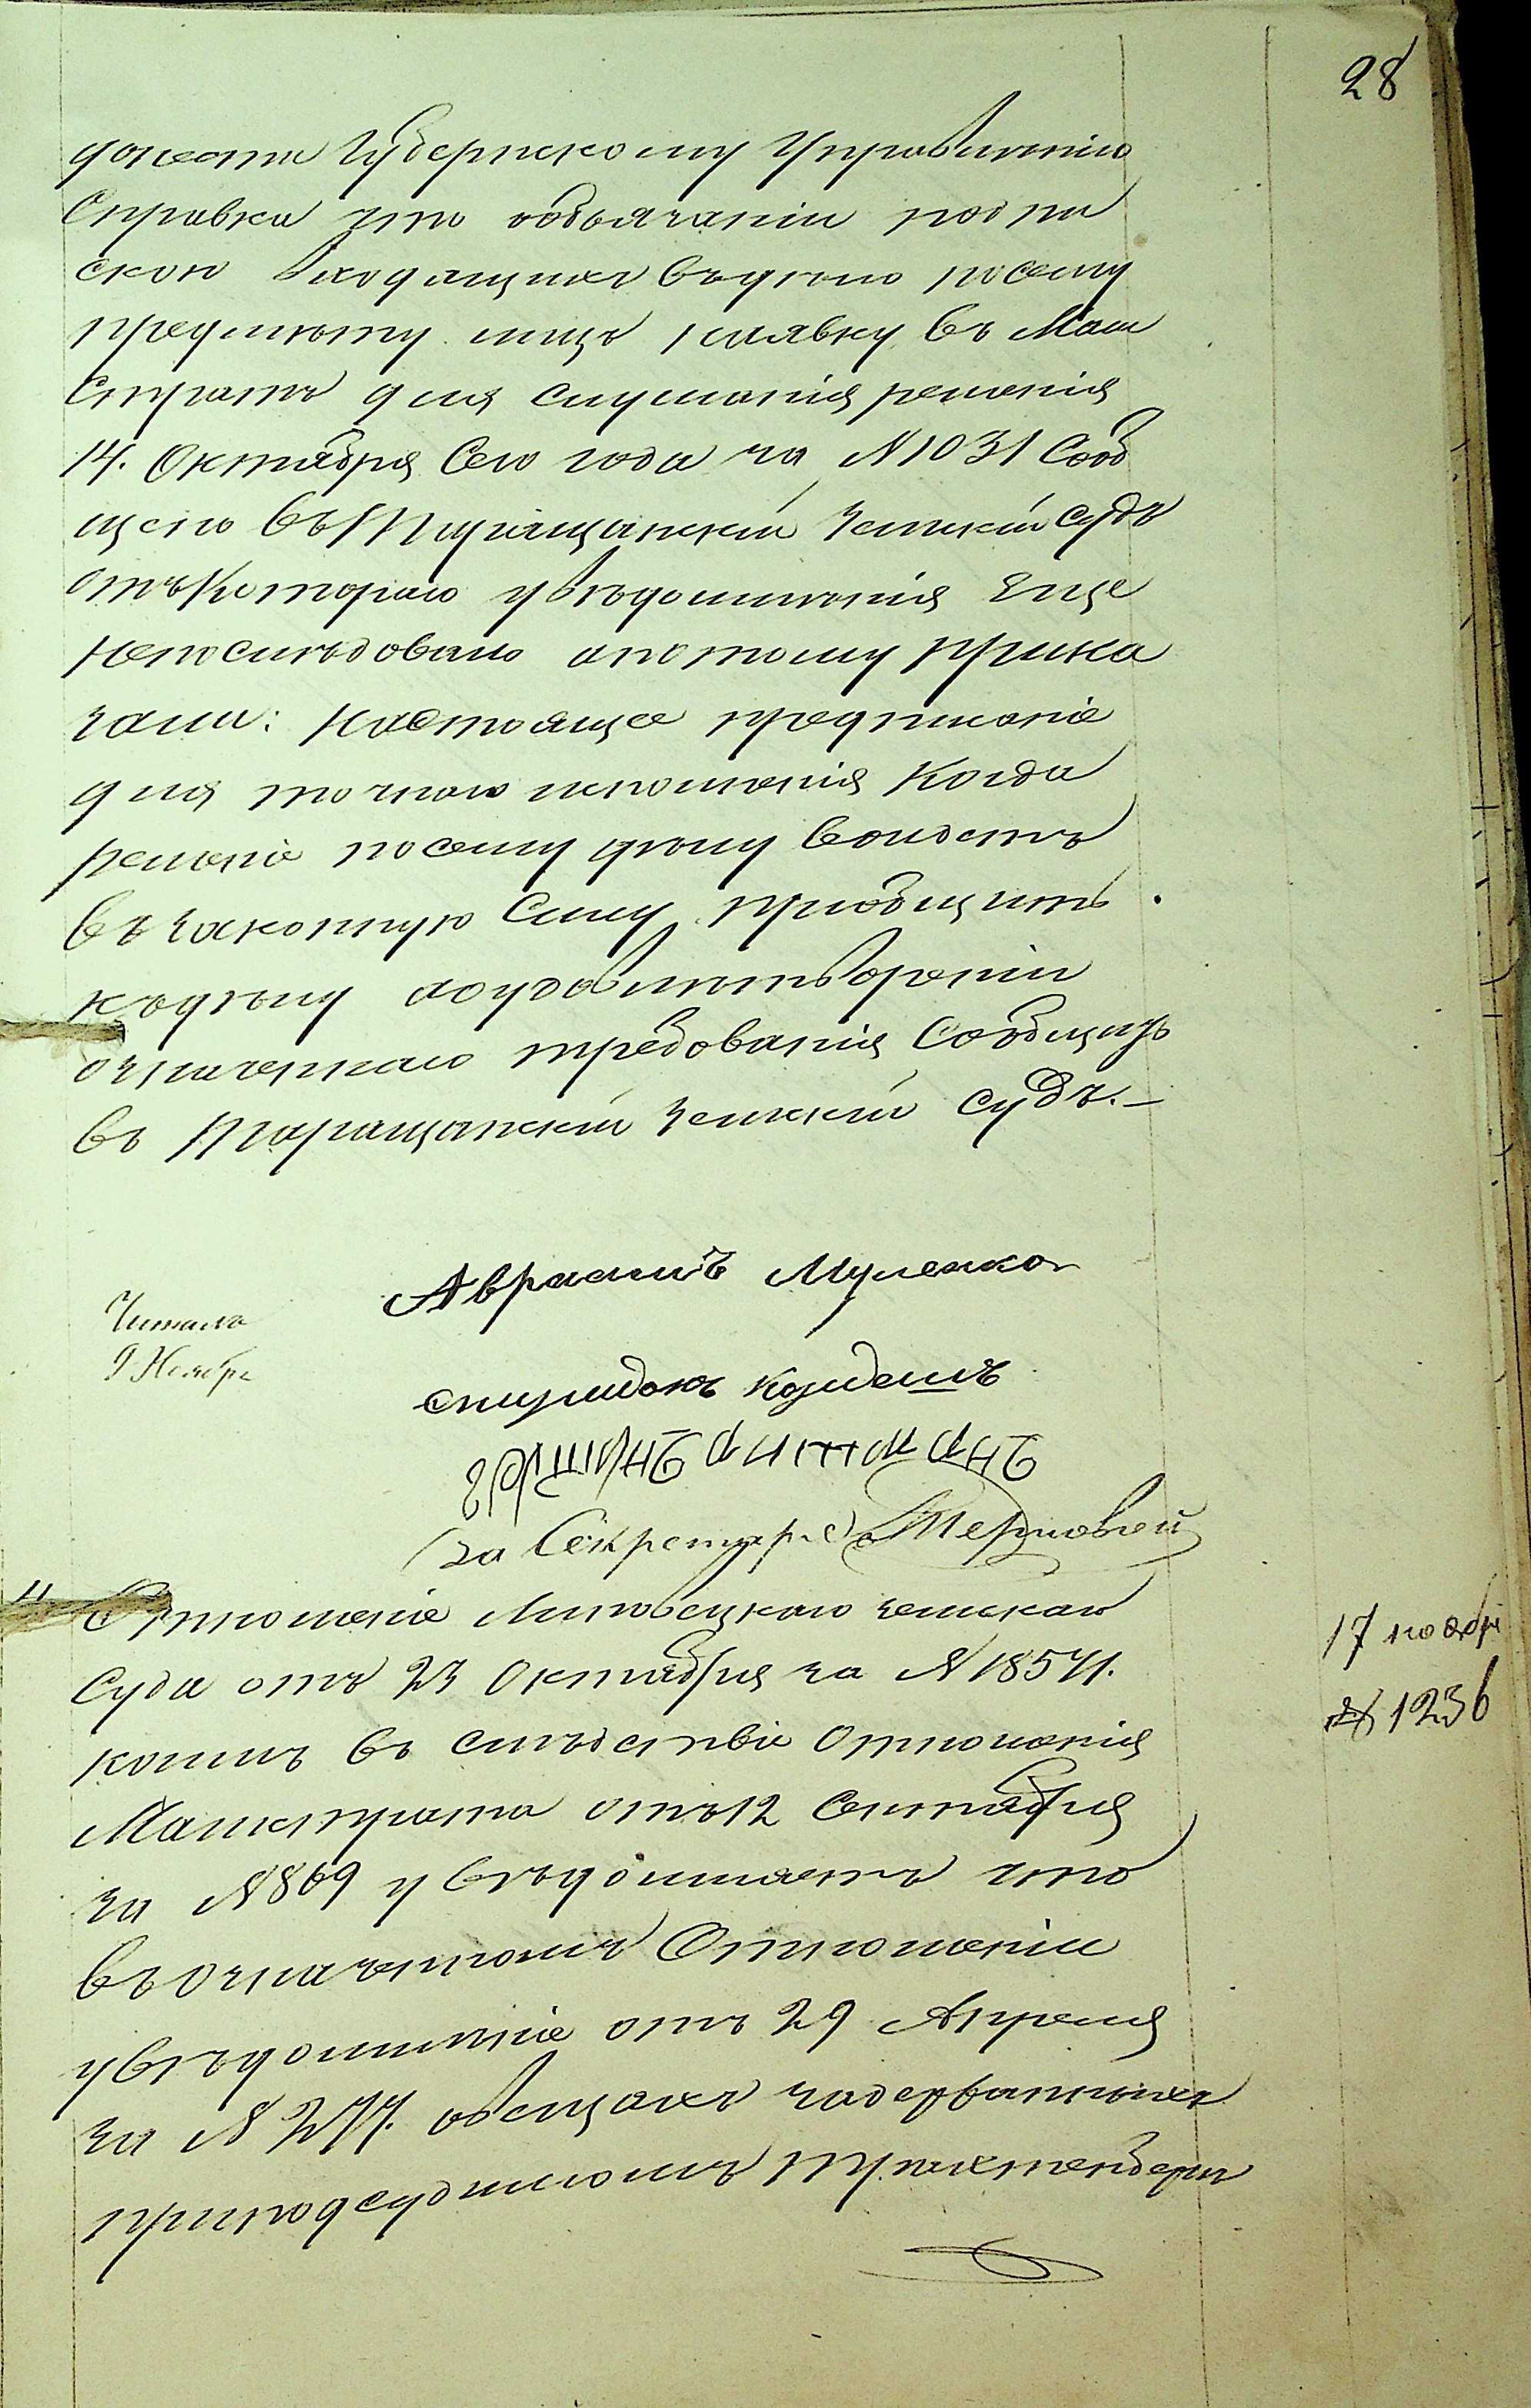 28
донести Губернскому Управленію
Справка что обовязаніи подпи
скою входящихъ въдѣло посему
предмѣту лицъ наявку въ Маги
стратъ для слушанія решенія
14. Октября Сего года за №1031 Сооб
щено въ Таращанскій Земскій судъ
отъ Котораго увѣдомленія Еще
непослѣдовало апотому прика
зали: Настоящее предписаніе
для точнаго исполненія Когда
решеніе посему дѣлу воидетъ
въ законную Силу приобщить
къдѣлу аоудовлетвореніи
означеннаго требованія Сообщить
въ Таращанскій Земскій судъ.—
Авраамъ Муленко
Читалъ
9 Ноябр
спиридонъ
за Секретаря Терновой
11
Отношеніе Липовецкаго земскаго
Суда отъ 23 Октября за №18571.
коимъ въ слѣдствіе Отношенія
Магистрата отъ12 Сентября
за №869 увѣдомляетъ что
въ означенномъ Отношеніи
увѣдомленіе отъ 29 Апреля
за № овещахъ задержанныхъ
приподсудимомъ Трахтенберг
17 ноябр
№ 1236